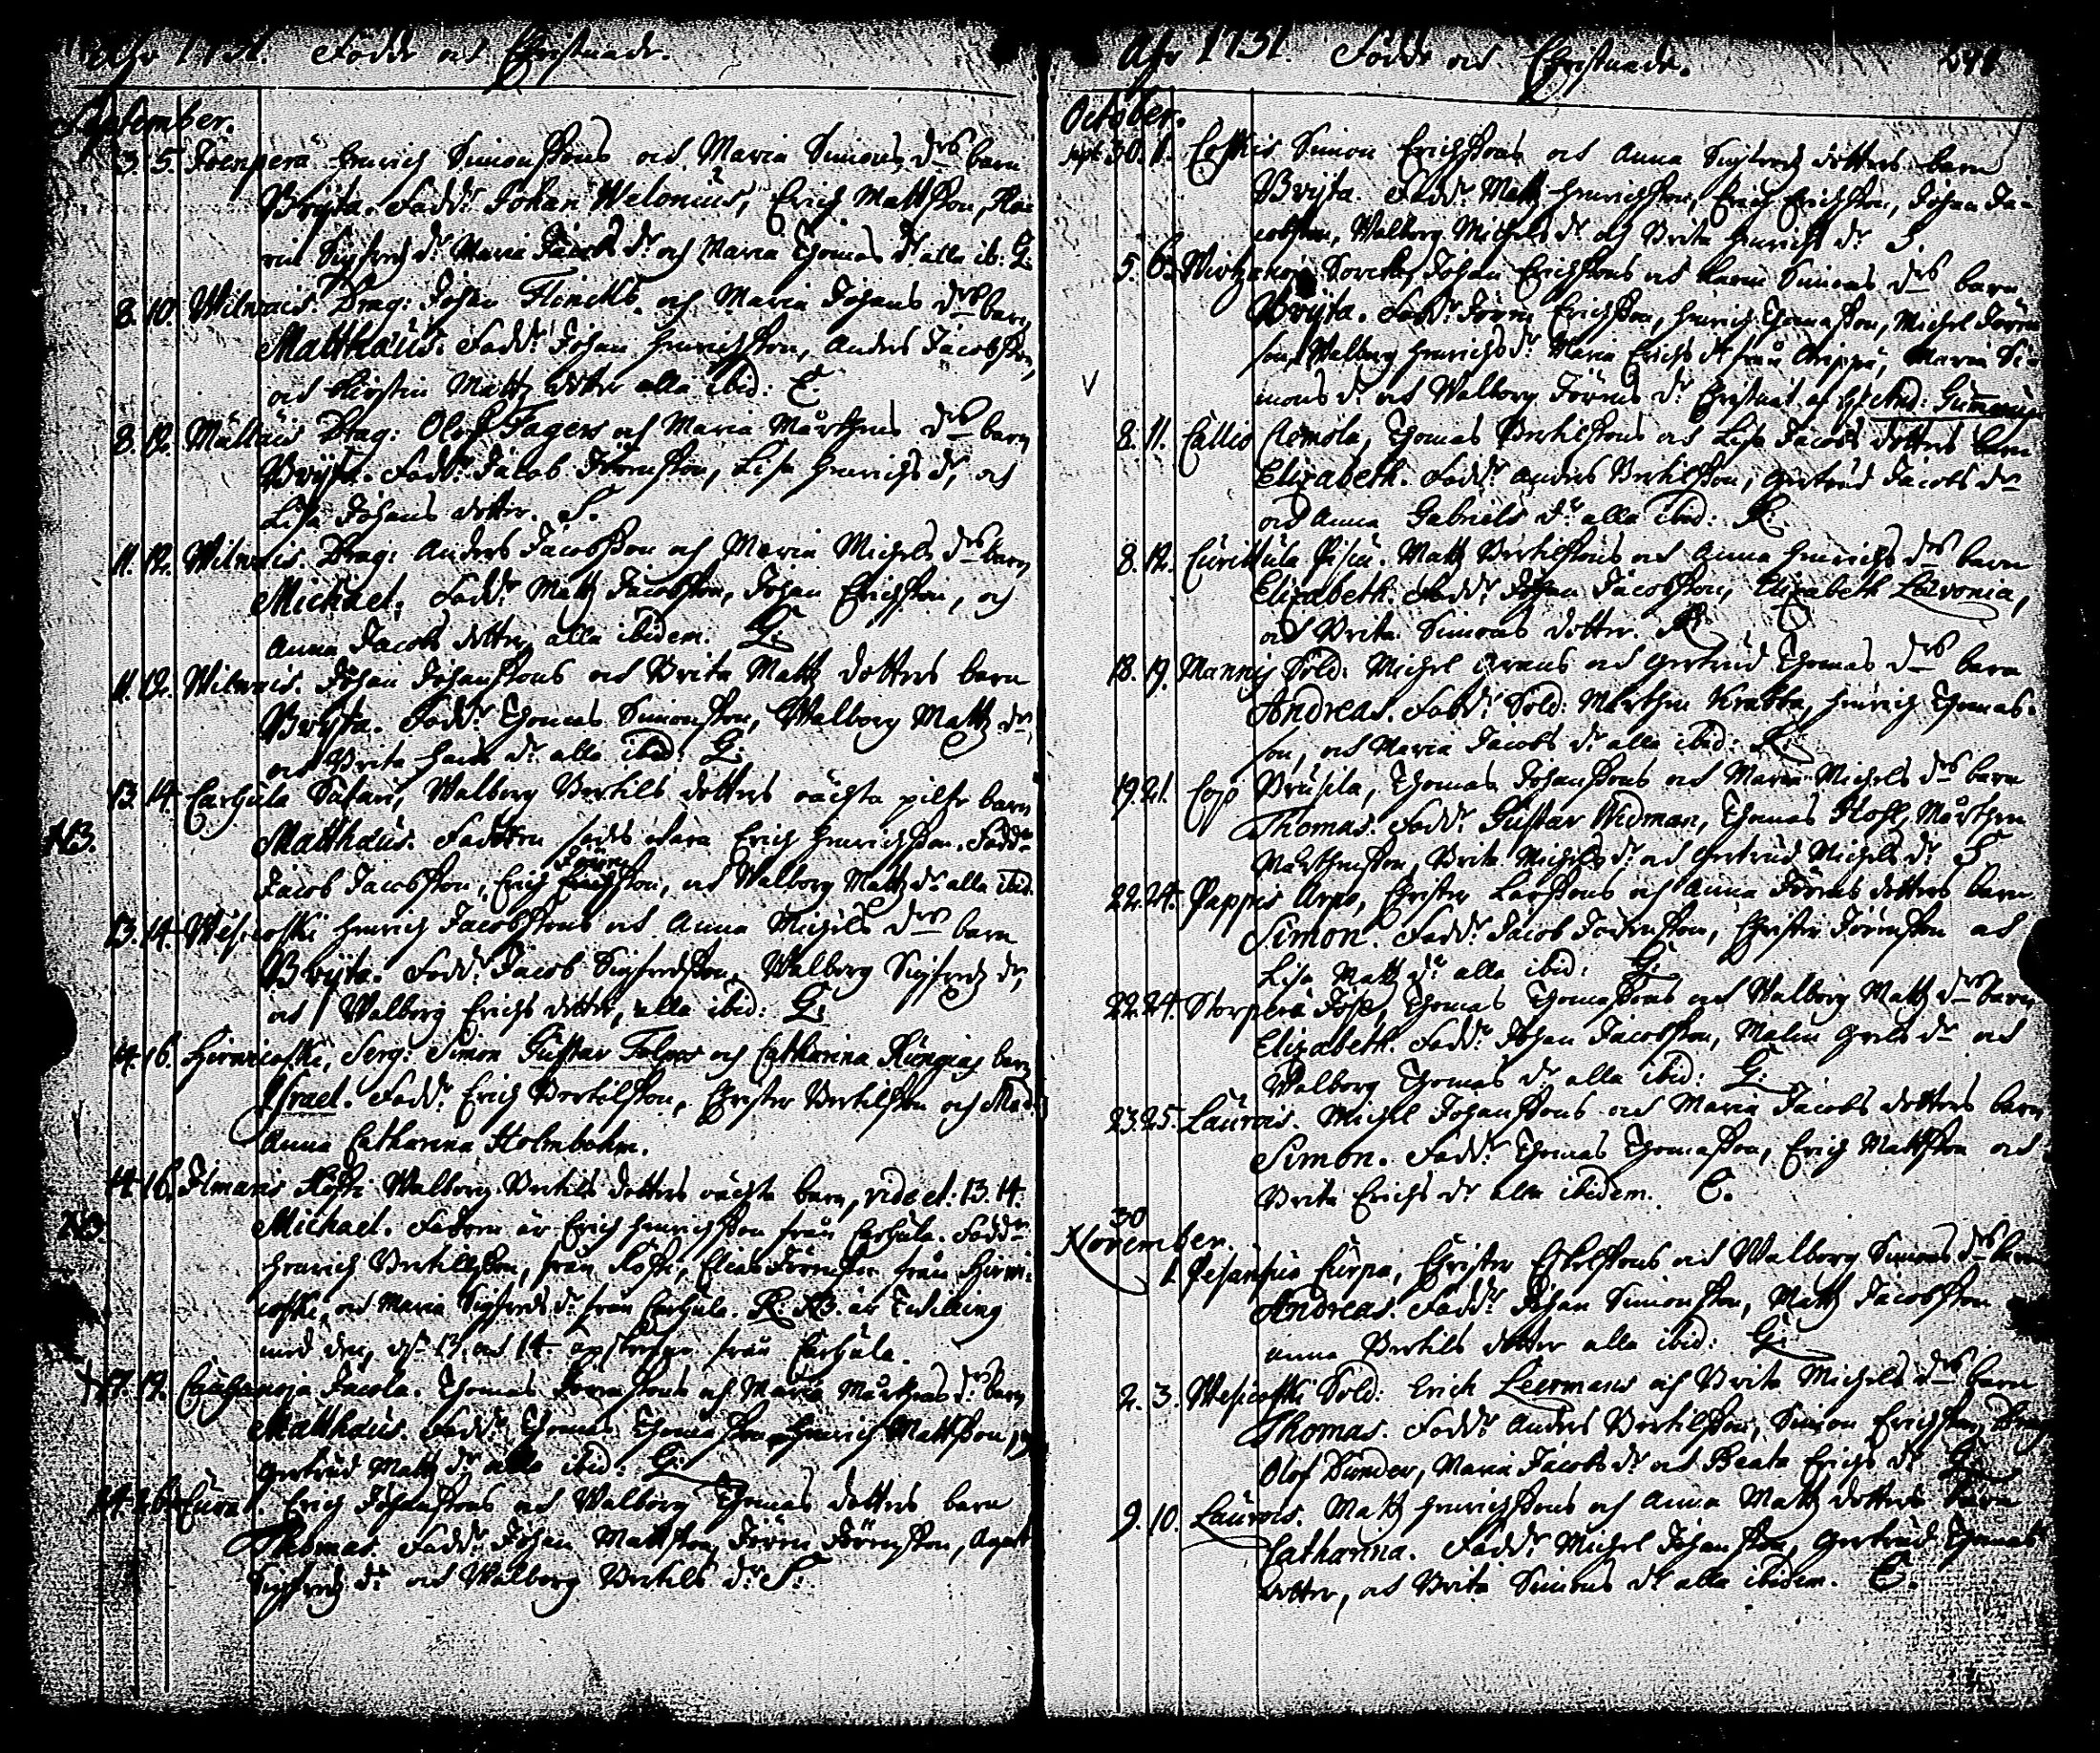 Åhr 1731. Födde och Christnade.
September.
3. 5. Joenpera Henrich Simonssons och Maria Simons drs barn
Bryta. Fadd: Johan Welonius, Erich Mattsson, Ka-
rin Sigfreds dr Maria Jacobs dr och Maria Thomas dr alla ib: G.
8. 10. Wilnais. Drag: Johan Flincks och Maria Johans drs barn
Matthæus. Fadd: Johan Henrichsson, Anders Jacobsson,
och Kirstin Matts dotter alla ibid: C.
8. 12. Mältäis Drag: Olof Fagers och Maria Mårthens drs barn
Bryta. Fadd: Jacob Jörensson, Lisa Henrichs dr, och
Lisa Johans dotter. S.
11. 12. Wilnais. Drag: Anders Jacobsson och Maria Michels drs barn
Michael. Fadd: Matts Jacobsson, Johan Erichsson, och
Anna Jacobs dotter alla ibidem. G.
11. 12. Wilnais. Johan Johanssons och Brita Matts dotters barn
Bryta. Fadd: Thomas Simonsson, Walborg Matts dr,
och Brita Hans dr alla ibid: G.
13. 14. Carhula Walborg Bertils dotters oächta barn
NB. Matthæus. Fadren Erich Henrichsson. Fadd:
Jacob Jacobsson, Erich Jörensson, och Walborg Matts dr alla ibid.
13. 14. Wesicoski Henrich Jacobssons och Anna Michels drs barn
Bryta. Fadd: Jacob Sigfredsson, Walborg Sigfreds dr,
och Walborg Erichs dotter, alla ibid: G.
14. 16. Hirwicoski, Serg: Simon Gustav och Catharina barn
Israel. Fadd: Erich Bertilsson, Christer Bertilsson och Mad:
Anna Catharina Holmbohm.
14. 16. Ilmaris Kosti Walborg Bertils dotters oächta barn, vide et: 13. 14.
NB. Michael. Fadren är Erich Henrichsson från Carhula. Fadd:
Henrich Bertilsson, från Kosti, Elias Jörensson från Hirwi-
coski, och Maria Sigfreds dr från Carhula. R. NB. är Twilling
med den, d. 13. och 14 från Carhula.
17. 19. Cauhanoja Jacola. Thomas Jörenssons och Maria Mårthens drs barn
Matthæus. Fadd: Thomas Thomasson, Henrich Mattsson,
Gertrud Matts dr alla ibid: G.
24. 26. Erich Johanssons och Walborg Thomas dotters barn
Thomas. Fadd: Johan Mattsson, Jören Jörensson, Agata
Sigfreds dr och Walborg Bertils dr. S.
Åhr 1731. Födde och Christnade. 241
October.
Sept. 30. 1. Simon Erichssons och Anna Sigfreds dotters barn
Bryta. Fadd: Matts Henrichsson, Erich Erichsson, Johan Ja-
cobsson, Walborg Michels dr och Brita Henrichs dr. S.
5. 6. Wirtzanoja Johan Erichssons och Karin Simons drs barn
Bryta. Fadd: Jören Erichsson, Henrich Thomasson, Michel Jören
son, Walborg Henrichs dr Maria Erichs dr från Maria Si-
mons dr och Walborg Jörens dr Christnat af And: Gummerus
8. 11. Callio Thomas Bertilssons och Lisa Jacobs dotters barn
Elizabeth. Fadd: Anders Bertilsson, Gertrud Jacobs dr
och Anna Gabriels dr alla ibid: R.
8. 12. Curittula Matts Bertilssons och Anna Henrichs drs barn
Elizabeth. Fadd: Johan Jacobsson, Elizabeth Levonia,
och Brita Simons dotter. R.
18. 19. Mannis Sold: Michel och Gertrud Thomas drs barn
Andreas. Fadd: Sold: Mårthen Krabba, Henrich Thomas-
son, och Maria Jacobs dr alla ibid: R.
19. 21. Cojo Prusila, Thomas Johanssons och Maria Michels drs barn
Thomas. Fadd: Gustav Widman, Thomas Mårthen
Mårthensson, Brita Michels dr och Gertrud Michels dr. S.
22. 24. Pappis Arpo, Christer Larssons och Anna Jörens dotters barn
Simon. Fadd: Jacob Jörensson, Christer Jörensson och
Lisa Matts dr alla ibid: G.
22. 24. Storpera Thomas Thomassons och Walborg Matts drs barn
Elizabeth. Fadd: Johan Jacobsson, Malin Grels dr och
Walborg Thomas dr alla ibid: G.
23. 25. Laurois. Michel Johanssons och Maria Jacobs dotters barn
Simon. Fadd: Thomas Thomasson, Erich Mattsson och
Brita Erichs dr alla ibidem. C.
30
November.
1. Pesänsuo Curpa, Christer Eskelssons och Walborg Simons drs barn
Andreas. Fadd: Johan Simonsson, Matts Jacobsson
Anna Bertils dotter alla ibid: G.
2. 3. Wesicoski Sold: Erich Leermans och Brita Michels drs barn
Thomas. Fadd: Anders Bertilsson, Simon Erichsson, Drag
Olof Dunder, Maria Jacobs dr och Beata Erichs dr G.
9. 10. Laurois. Matts Henrichssons och Anna Matts dotters barn
Catharina. Fadd: Michel Johansson, Gertrud Thomas
dotter, och Brita Simons dr alla ibidem. C.